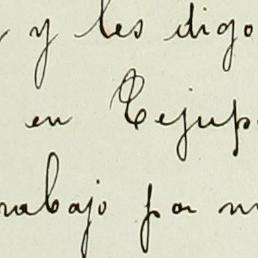 y les digo
en Tejup
rabajo por m